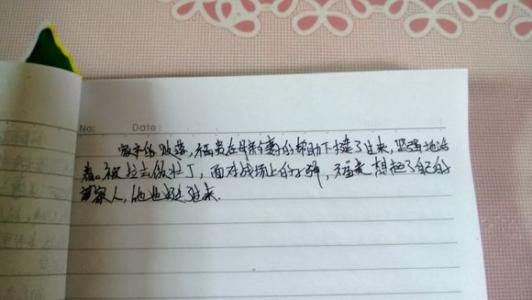 No: Date:
家中的败落，福贵在母亲等的帮助下撑了过来，坚强地活
着。被拉去做壮丁，面对战场上的子弹，福贵想起了自己的
家人，他也挺过来